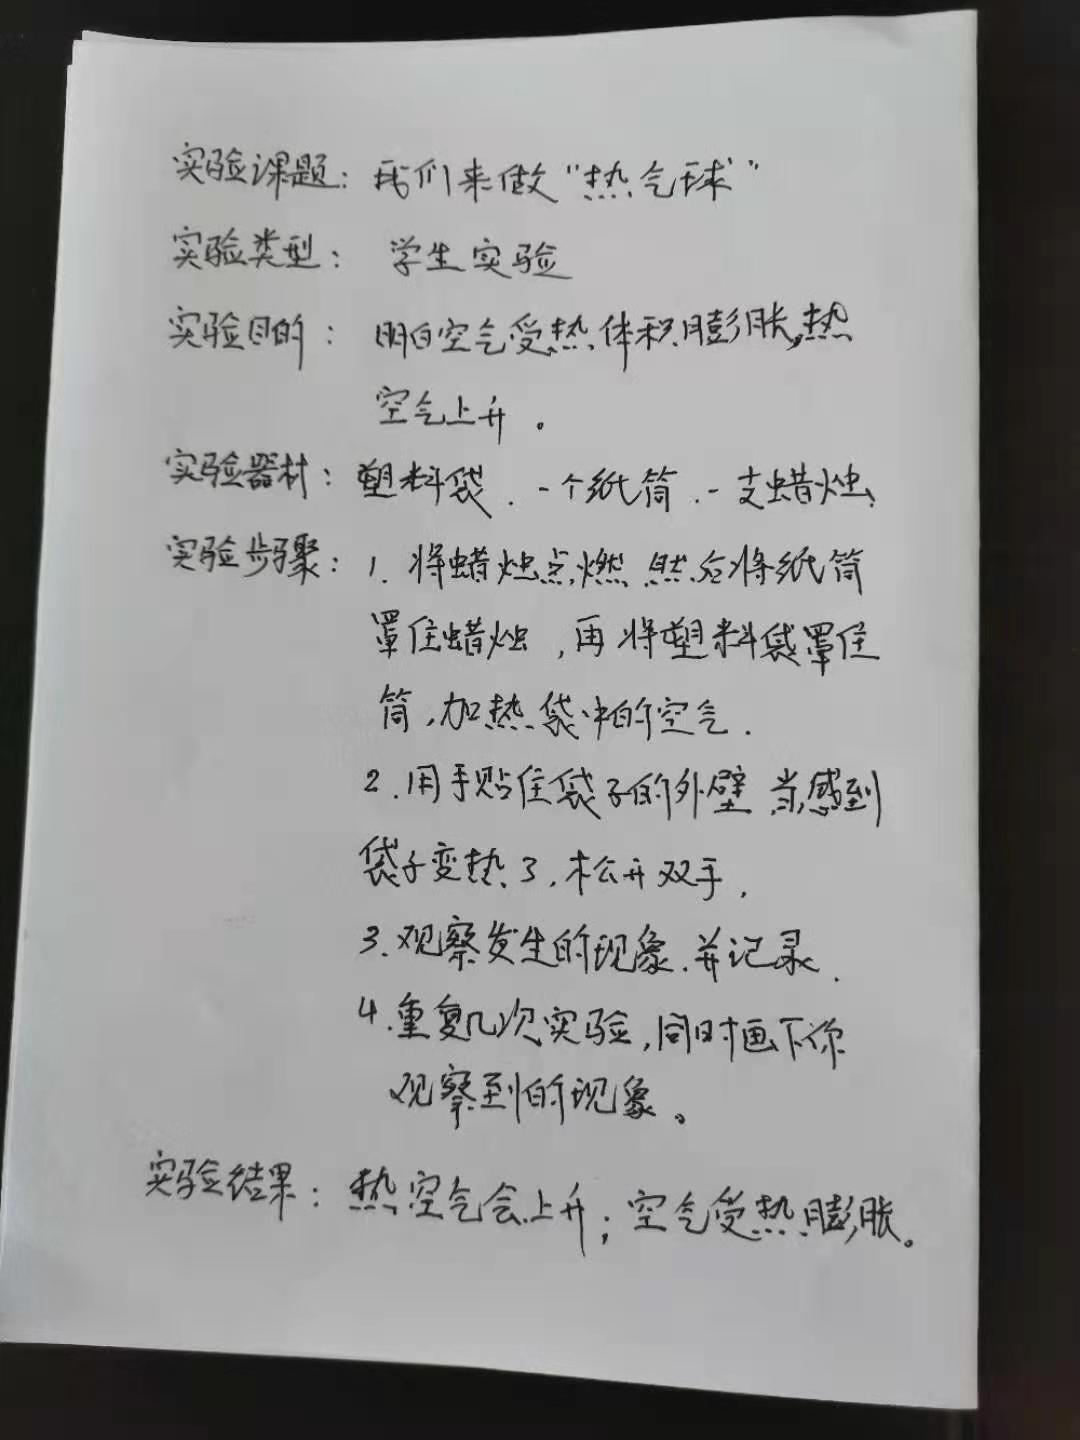 实验课题：我们来做“热气球”
实验类型：学生实验
实验目的：明白空气受热体积膨胀，热
空气上升。
实验器材：塑料袋、一个纸筒、一支蜡烛、
实验步骤：1.将蜡烛点燃，然后将纸筒
罩住蜡烛，再将塑料袋罩住
筒，加热袋中的空气.
2.用手贴住袋子的外壁，当感到
袋子变热了，松开双手，
3.观察发生的现象、并记录.
4.重复几次实验，同时画下你
观察到的现象。
实验结果：热空气会上升；空气受热膨胀。